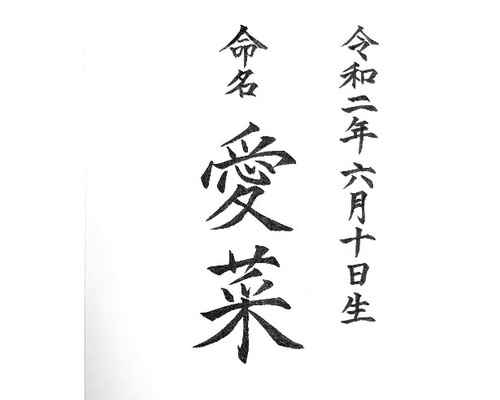 令和二年 六月十日生
命名 愛菜